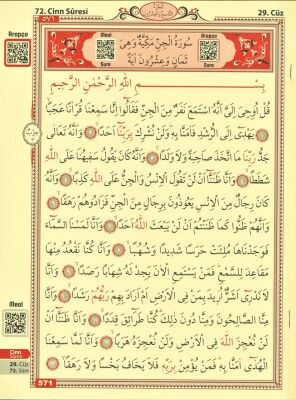 72. Cinn Sûresi
29. Cüz
٥٧١
Arapça
Meal
Sure
سُورَةُ الْجِنِّ مَكِّيَّةٌ وَهِيَ
ثَمَانٍ وَعِشْرُونَ اٰيَةً
Arapça
Sure
بِسْمِ اللّٰهِ الرَّحْمٰنِ الرَّحِيمِ
قُلْ اُوحِيَ اِلَيَّ اَنَّهُ اسْتَمَعَ نَفَرٌ مِنَ الْجِنِّ فَقَالُٓوا اِنَّا سَمِعْنَا قُرْاٰنًا عَجَبًا
يَهْدِٓي اِلَى الرُّشْدِ فَاٰمَنَّا بِهِ وَلَنْ نُشْرِكَ بِرَبِّنَٓا اَحَدًا وَاَنَّهُ تَعَالٰى
جَدُّ رَبِّنَا مَا اتَّخَذَ صَاحِبَةً وَلَا وَلَدًا وَاَنَّهُ كَانَ يَقُولُ سَفِيهُنَا عَلَى اللّٰهِ
شَطَطًا وَاَنَّا ظَنَنَّٓا اَنْ لَنْ تَقُولَ الْاِنْسُ وَالْجِنُّ عَلَى اللّٰهِ كَذِبًا وَاَنَّهُ
كَانَ رِجَالٌ مِنَ الْاِنْسِ يَعُوذُونَ بِرِجَالٍ مِنَ الْجِنِّ فَزَادُوهُمْ رَهَقًا
وَاَنَّهُمْ ظَنُّوا كَمَا ظَنَنْتُمْ اَنْ لَنْ يَبْعَثَ اللّٰهُ اَحَدًا وَاَنَّا لَمَسْنَا السَّمَٓاءَ
فَوَجَدْنَاهَا مُلِئَتْ حَرَسًا شَدِيدًا وَشُهُبًا وَاَنَّا كُنَّا نَقْعُدُ مِنْهَا
مَقَاعِدَ لِلسَّمْعِ فَمَنْ يَسْتَمِعِ الْاٰنَ يَجِدْ لَهُ شِهَابًا رَصَدًا وَاَنَّا
لَا نَدْرِٓي اَشَرٌّ اُرِيدَ بِمَنْ فِي الْاَرْضِ اَمْ اَرَادَ بِهِمْ رَبُّهُمْ رَشَدًا وَاَنَّا
مِنَّا الصَّالِحُونَ وَمِنَّا دُونَ ذٰلِكَ كُنَّا طَرَٓائِقَ قِدَدًا وَاَنَّا ظَنَنَّٓا اَنْ
لَنْ نُعْجِزَ اللّٰهَ فِي الْاَرْضِ وَلَنْ نُعْجِزَهُ هَرَبًا وَاَنَّا لَمَّا سَمِعْنَا
الْهُدٰٓى اٰمَنَّا بِهِ فَمَنْ يُؤْمِنْ بِرَبِّهِ فَلَا يَخَافُ بَخْسًا وَلَا رَهَقًا
Meal
Cinn
29. Cüz
72. Sûre
571